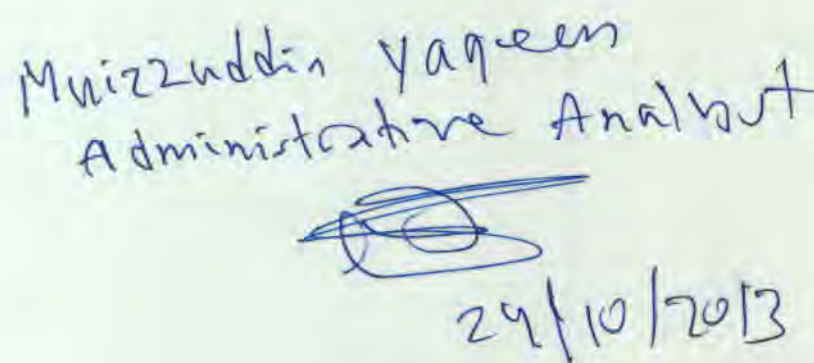 Muizzuddin Yaqeen
Administrative Analyst
29/10/2013